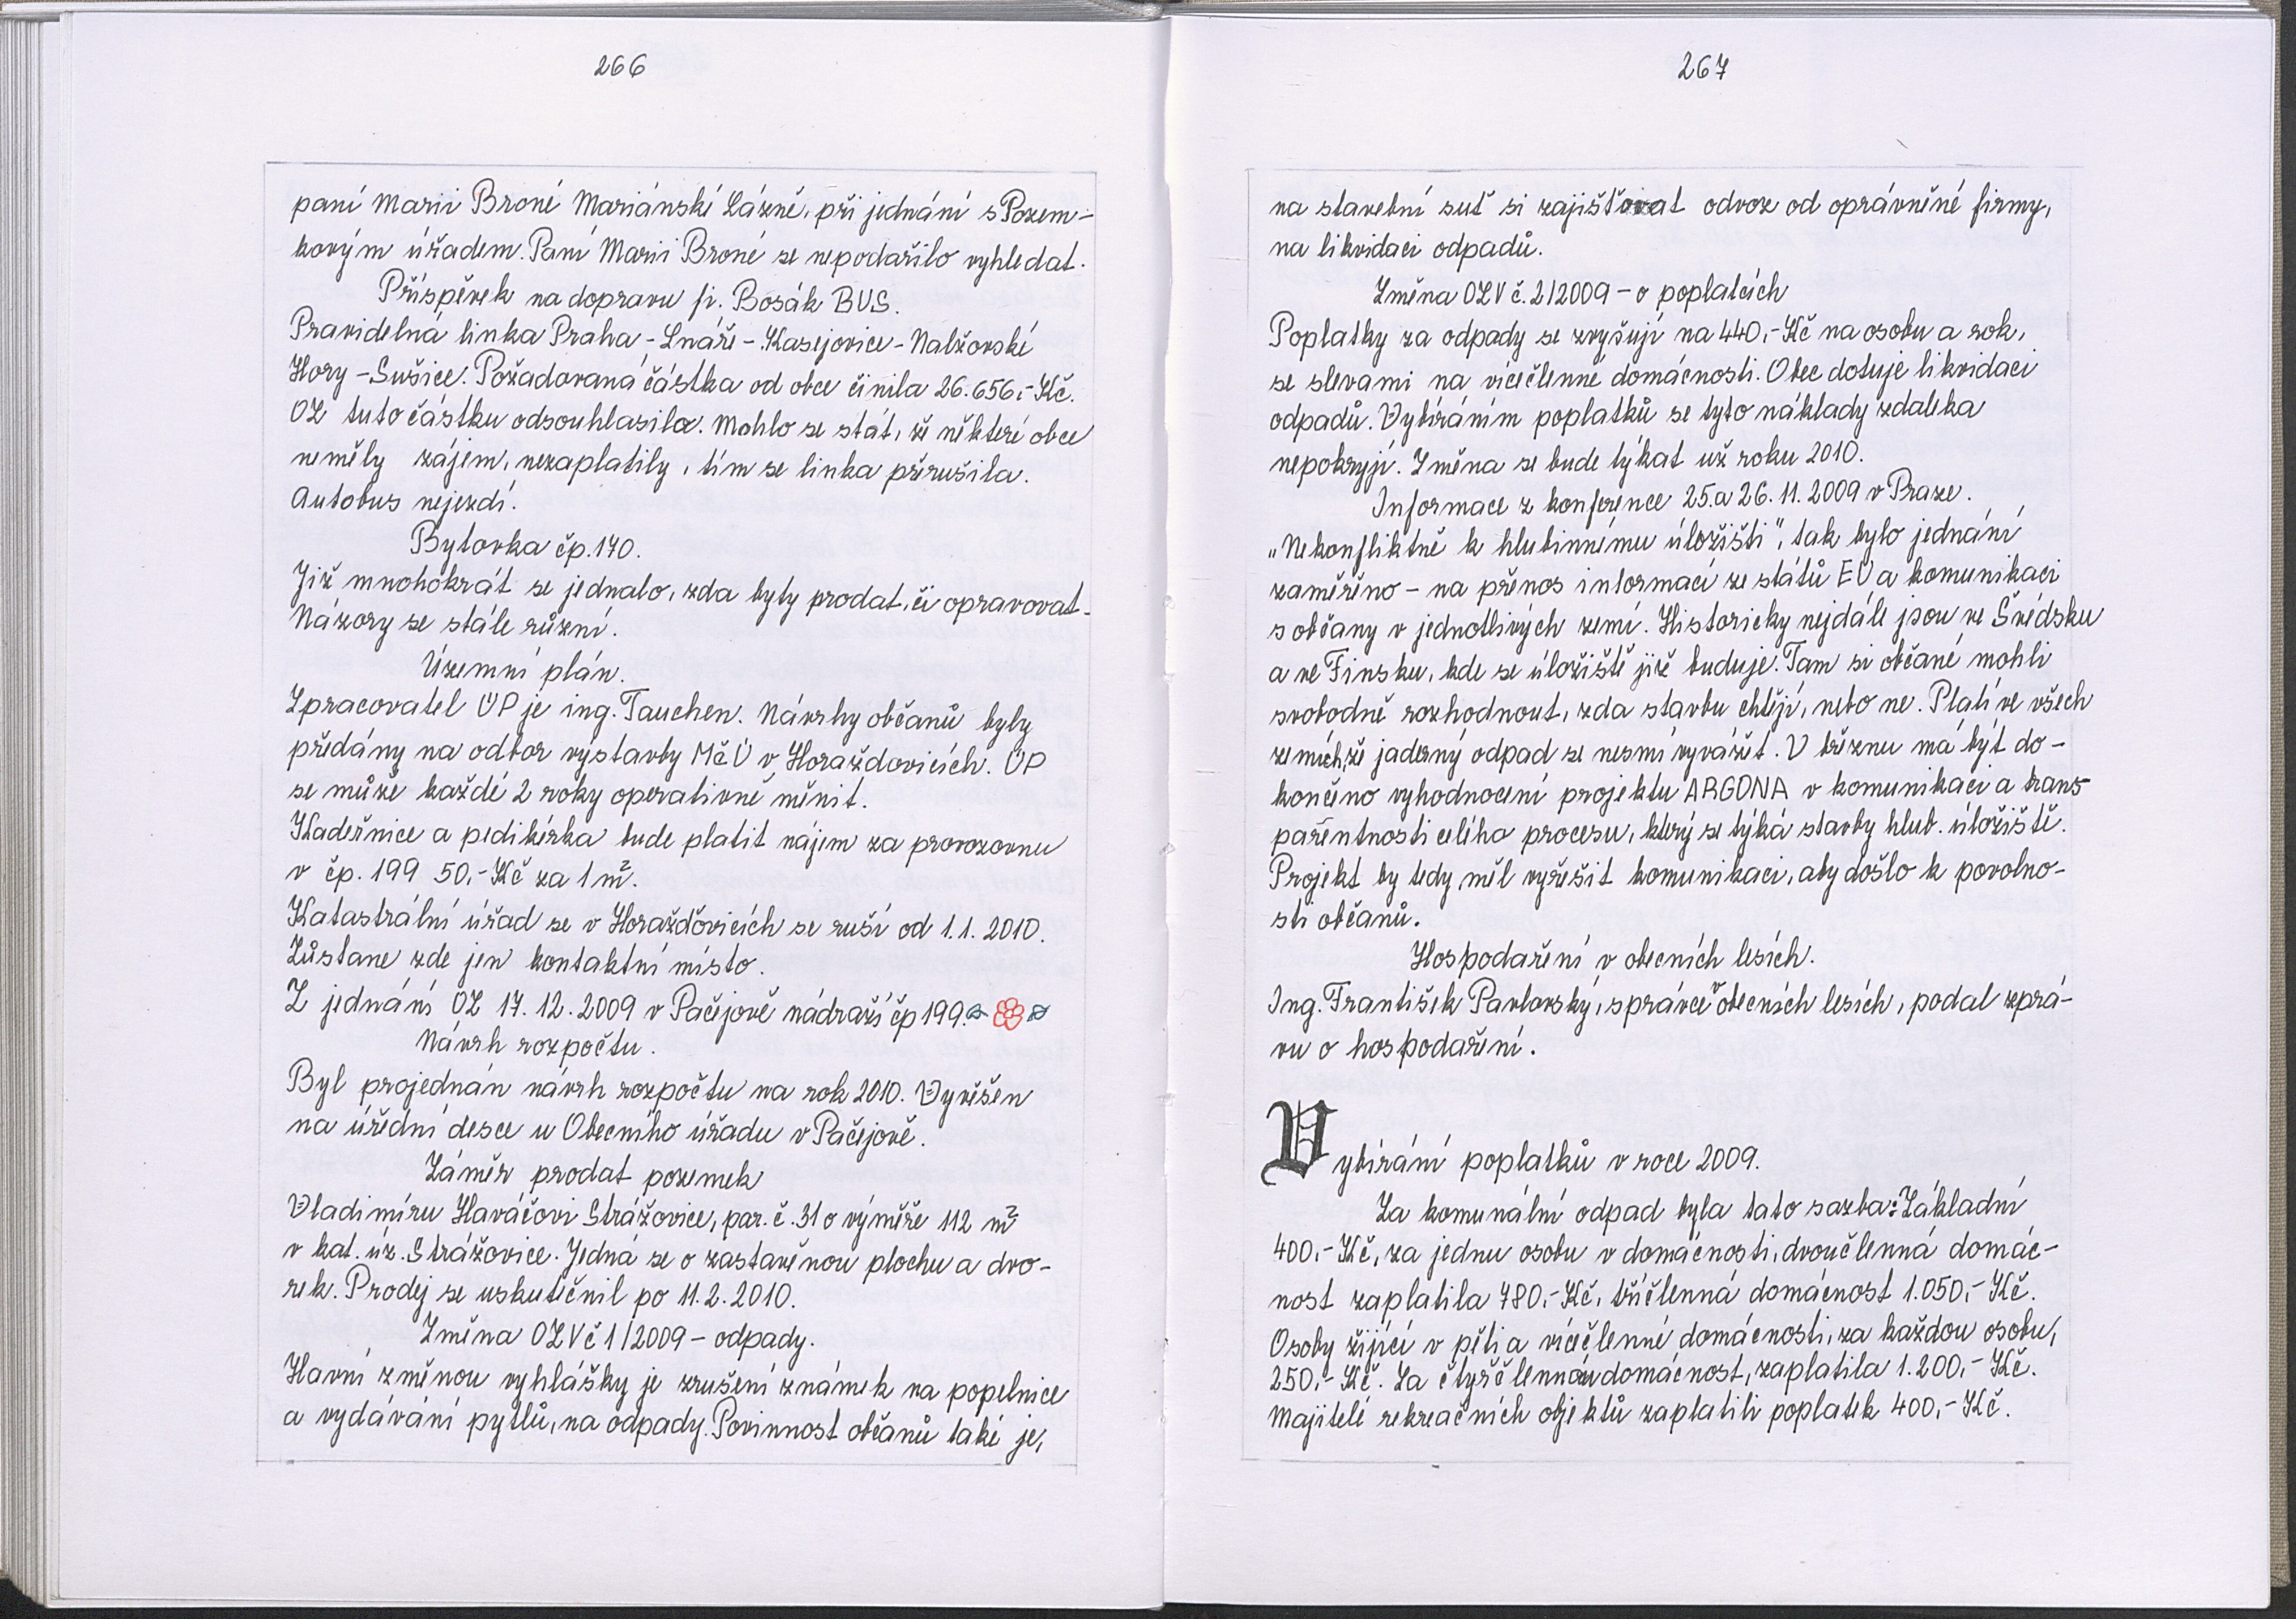 266
paní Marii Broné Mariánské Lázně, při jednání s Pozem-
kovým úřadem. Paní Marii Broné se nepodařilo vyhledat.
Příspěvek na dopravu fi. Bosák BUS.
Pravidelná linka Praha - Lnáře - Kasejovice - Nalžovské
Hory - Sušice. Požadovaná částka od obce činila 26.656,- Kč.
OZ tuto částku odsouhlasila. Mohlo se stát, že některé obce
neměly zájem, nezaplatily, tím se linka přerušila.
Autobus nejezdí.
Bytovka čp. 170.
Již mnohokrát se jednalo, zda byty prodat, či opravovat.
Názory se stále různí.
Územní plán.
Zpracovatel ÚP je ing. Tauchen. Návrhy občanů byly
předány na odbor výstavby MěÚ v Horažďovicích. ÚP
se může každé 2 roky operativně měnit.
Kadeřnice a pedikérka bude platit nájem za provozovnu
v čp. 199 50,- Kč za 1 m².
Katastrální úřad se v Horažďovicích se ruší od 1.1. 2010.
Zůstane zde jen kontaktní místo.
Z jednání OZ 17. 12. 2009 v Pačejově nádraží čp 199.
Návrh rozpočtu.
Byl projednán návrh rozpočtu na rok 2010. Vyvěšen
na úřední desce u Obecního úřadu v Pačejově.
Záměr prodat pozemek
Vladimíru Hlaváčovi Strážovice, par. č. 31 o výměře 112 m²
v kat. úz. Strážovice. Jedná se o zastavěnou plochu a dvo-
rek. Prodej se uskutečnil po 11. 2. 2010.
Změna OZV č 1/2009 - odpady.
Hlavní změnou vyhlášky je zrušení známek na popelnice
a vydávání pytlů, na odpady. Povinnost občanů také je,
267
na stavební suť si zajišťovat odvoz od oprávněné firmy,
na likvidaci odpadů.
Změna OZV č. 2/2009 - o poplatcích
Poplatky za odpady se zvyšují na 440,- Kč na osobu a rok,
se slevami na vícečlenné domácnosti. Obec dotuje likvidaci
odpadů. Vybíráním poplatků se tyto náklady zdaleka
nepokryjí. Změna se bude týkat už roku 2010.
Informace z konference 25. a 26. 11. 2009 v Praze.
„Nekonfliktně k hlubinnému úložišti", tak bylo jednání
zaměřeno - na přenos informací ze států EU a komunikaci
s občany v jednotlivých zemí. Historicky nejdále jsou ve Švédsku
a ve Finsku, kde se úložiště již buduje. Tam si občané mohli
svobodně rozhodnout, zda stavbu chtějí, nebo ne. Platí ve všech
zemích, že jaderný odpad se nesmí vyvážet. V březnu má být do-
končeno vyhodnocení projektu ARGONA v komunikaci a trans-
parentnosti celého procesu, který se týká stavby hlub. úložiště.
Projekt by tedy měl vyřešit komunikaci, aby došlo k povolno-
sti občanů.
Hospodaření v obecních lesích.
Ing. František Pavlovský, správce v obecních lesích, podal zprá-
vu o hospodaření.
Vybírání poplatků v roce 2009.
Za komunální odpad byla tato sazba: Základní
400,- Kč, za jednu osobu v domácnosti, dvoučlenná domác-
nost zaplatila 780,- Kč, tříčlenná domácnost 1.050,- Kč.
Osoby žijící v pěti a vícečlenné domácnosti, za každou osobu,
250,- Kč. Za čtyřčlennou domácnost, zaplatila 1.200,- Kč.
Majitelé rekreačních objektů zaplatili poplatek 400,- Kč.